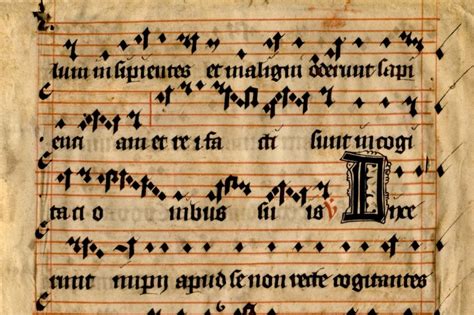 lum insipientes et maligni oderunt sapi
enci am et rei fa cti sunt in cogi
taci o nibus su is V Dixe
runt impij apud se non recte cogitantes